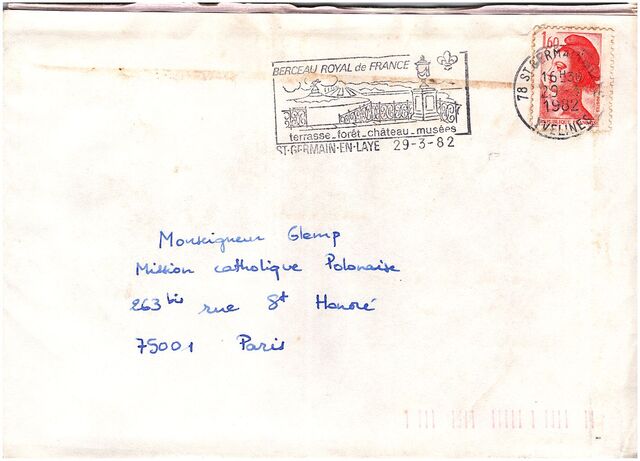 BERCEAU ROYAL de FRANCE
terrasse_forêt_château_musées
ST-GERMAIN-EN-LAYE 29-3-82
1,60
78 ST GERMAIN
16H30
29
1982
YVELINES
Monseigneur Glemp
Mission catholique Polonaise
263 bis rue St Honoré
75001 Paris